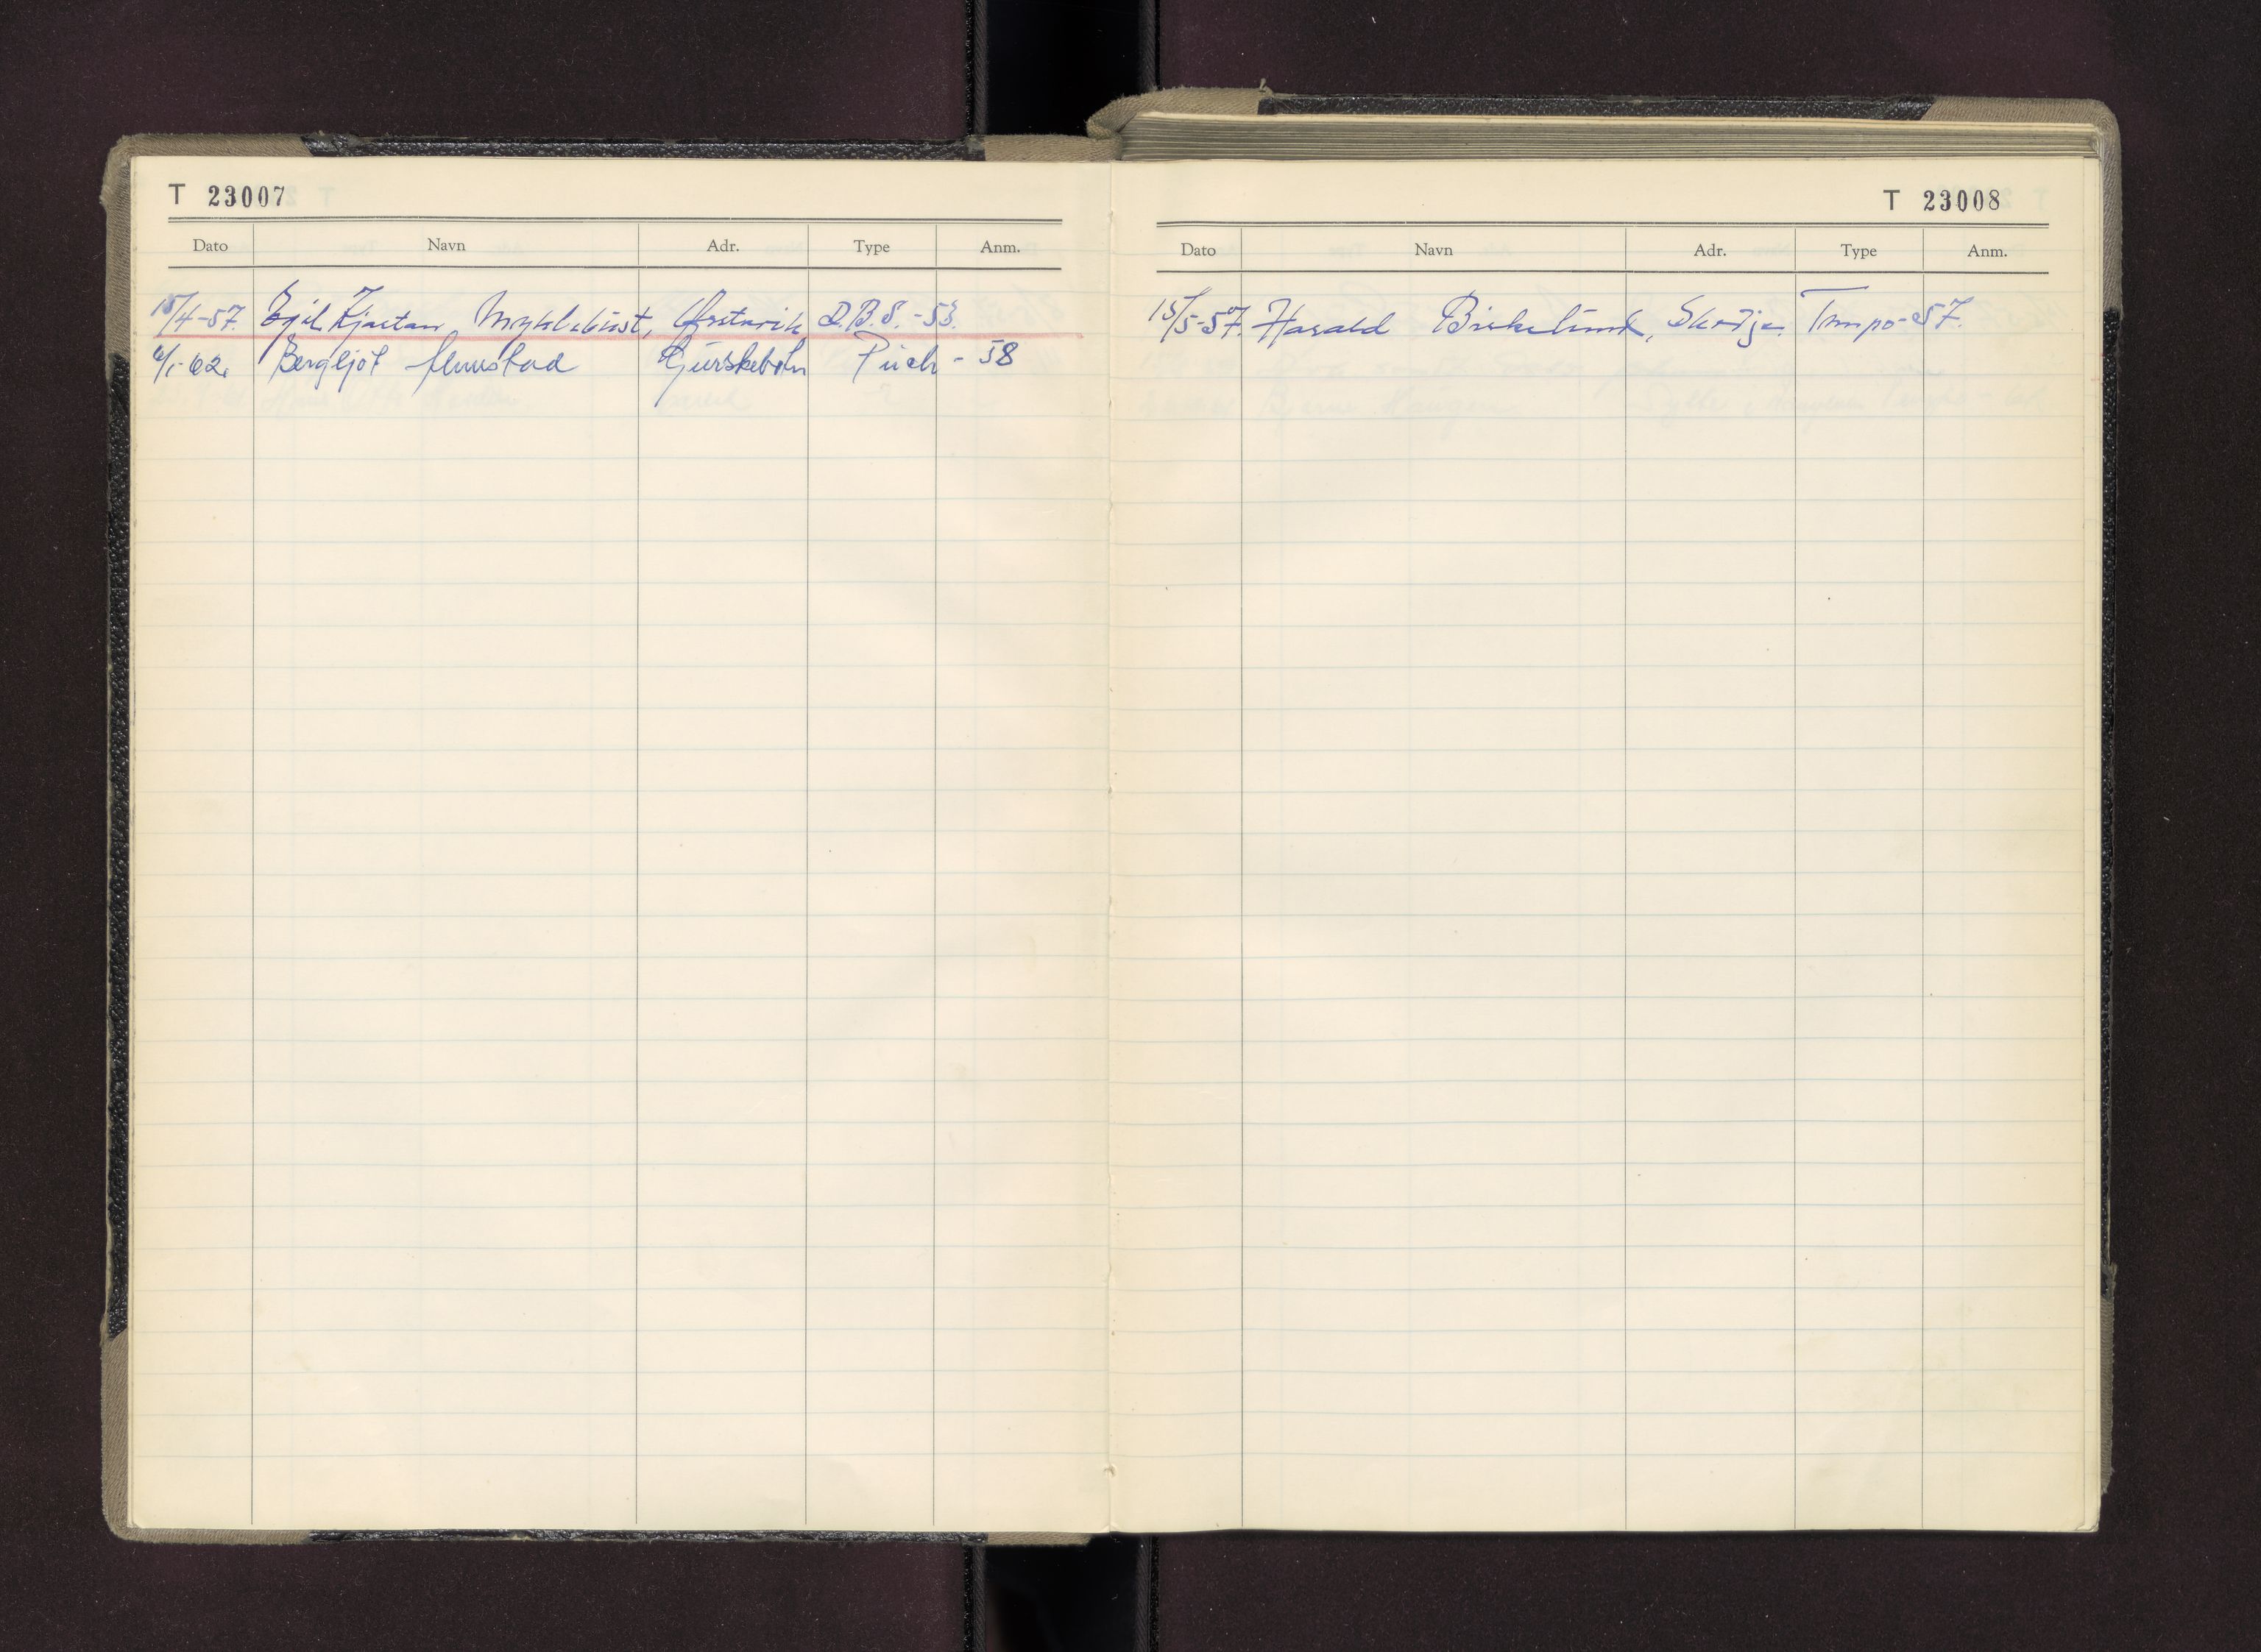 T 23007
Dato Navn Adr. Type Anm.
15/4-57. Egil Kjartan Myklebust, Ørstavik D.B.S. -53.
4/1-62. Bergljot Almestad Gjurskebotn Puch - 58
T 23008
Dato Navn Adr. Type Anm.
15/5-57. Harald Birkelund, Skodje. Tempo-57.